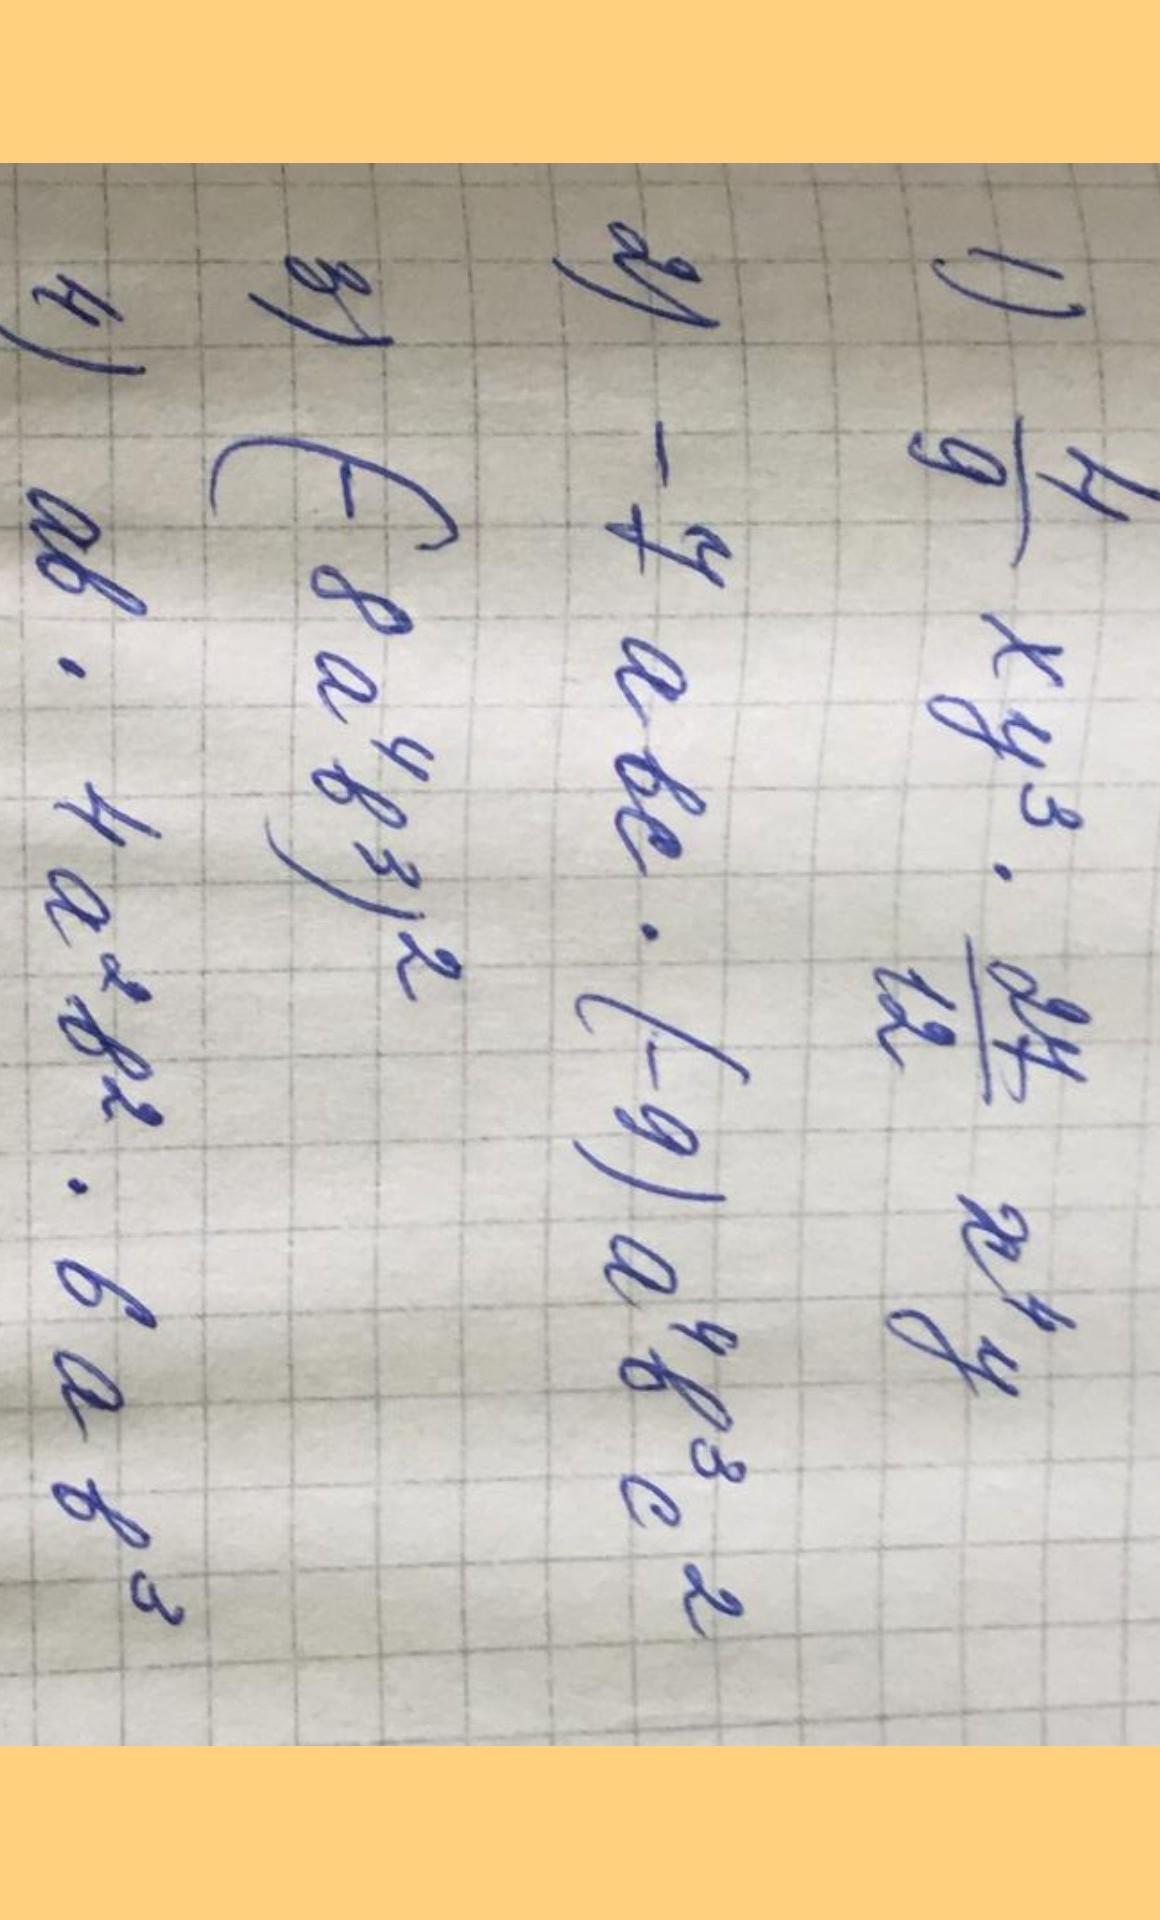 1) 4/9 xy³ · 27/12 x⁴y
2) -7 abc · (-9) a⁴b³c²
3) (-8a⁴b³)²
4) ab · 4a²b² · 6ab³